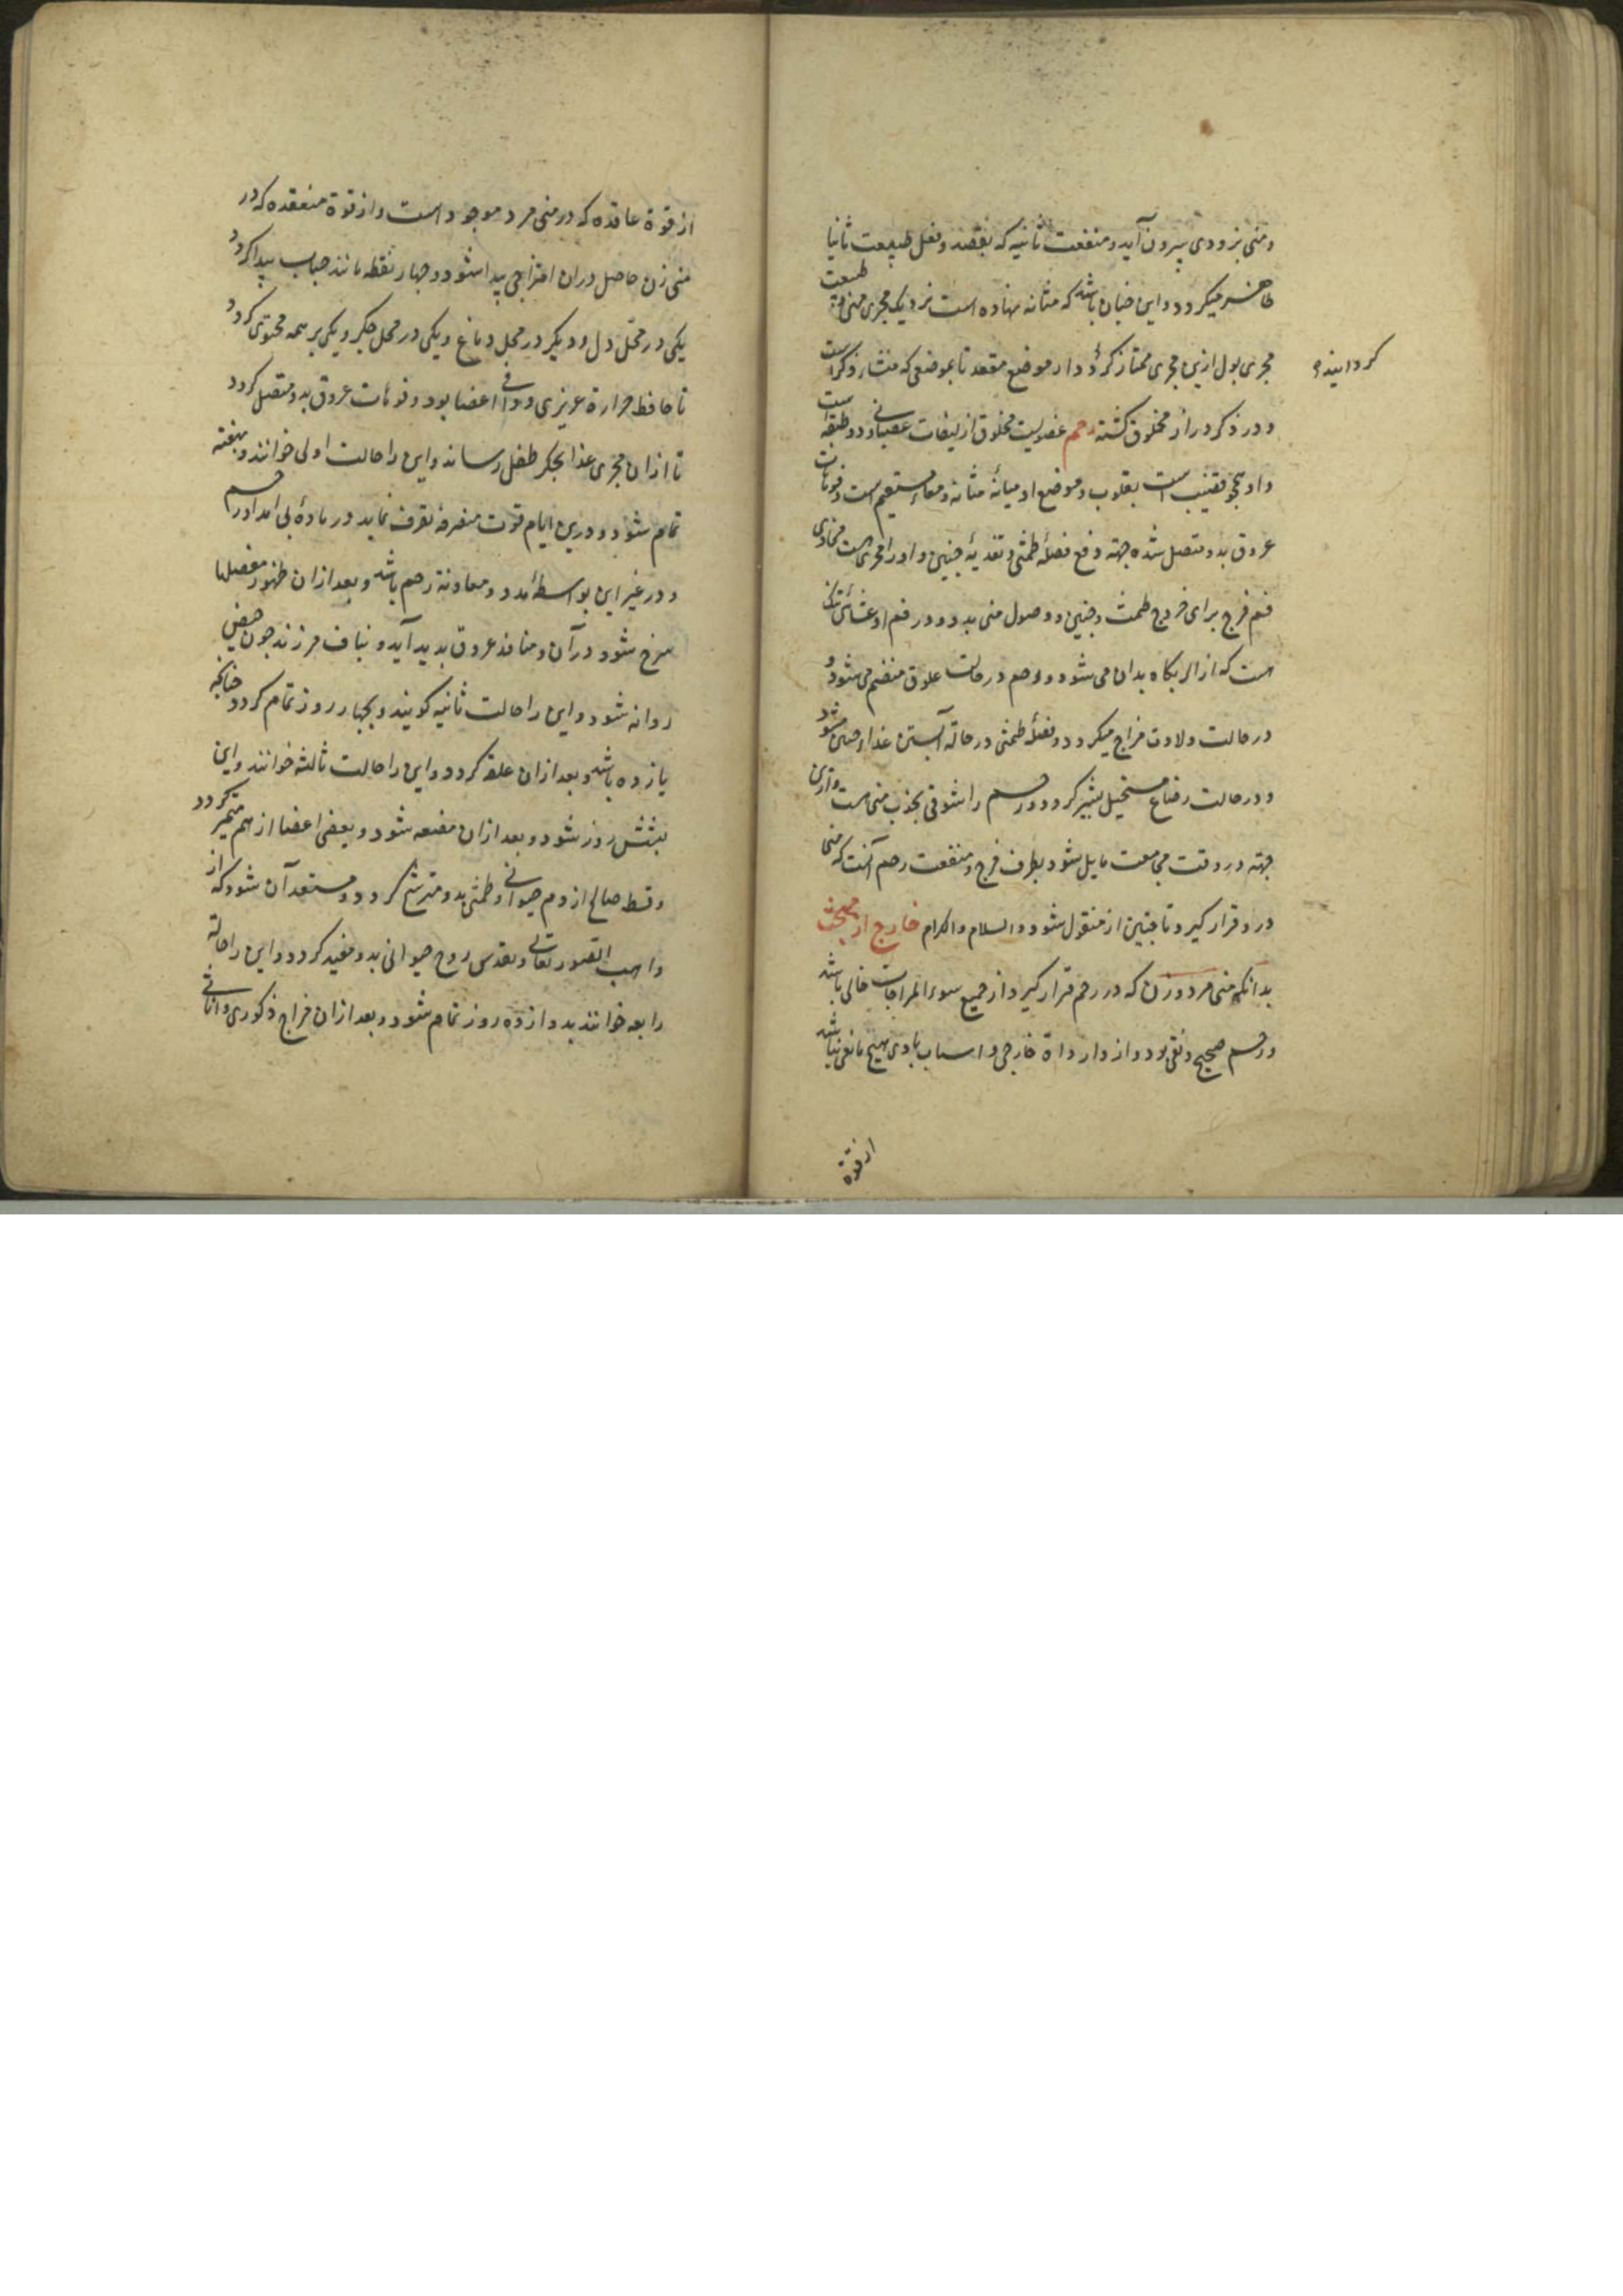 و منی بزودی بیرون آید و منفعت ثانیه که بقصد و فعل طبیعت ثانیا
ظاهر میکردد و این چنان باشد که مثانه نهاده است نزدیک مجری منی و طبیعت
مجری بول ازین مجری ممتاز کرد و از موضع مقعد تا بموضعی که منشاء ذکر است
کردانیده
و در ذکر دراز مخلوق کشته رحم عضویست مخلوق از لیفات عصبانی و دو طبقه است
و او همچو قضیب است بقلوب و موضع او میانهٔ مثانه و معاء مستقیم است و فوهات
عروق بدو متصل شده جهته دفع فضلهٔ طمثی و تغدیهٔ جنین و او را مجری است محاذی
فم فرج برای خروج طمث و جنین و وصول منی بدو و در فم او غشائی
است که ازاله بکاه بدان می شود و رحم در حالت علوق منضم می شود و
در حالت ولادت فراج میکردد و فضلهٔ طمثی در حالة آبستن غذاء جنین شود
و در حالت رضاع مستحیل بشیر کردد و رحم را شوقی بجذب منی است و ازین
جهته در وقت مجامعت مایل شود بطرف فرج و منفعت رحم آنست که منی
درو قرار کیرد و تا جنین از منقول شود والسلام والاکرام خارج از مبحث
بدانکه منی مرد و زن که در رحم قرار کیرد از جمیع سوء المزاجات خالی باشد
و رحم صحیح و نقی بود و از واردات خارجی و اسباب بادی هیچ مانعی نباشد
از قوة
از قوة عاقده که در منی مرد موجود است و از قوة منعقده که در
منی زن حاصل دران امتزاجی پیدا شود و چهار نقطه مانند حباب پیدا کردد
یکی در محل دل و دیکر در محل دماغ و یکی در محل جکر و یکی بر همه محتوی کردد
تا حافظ حرارة غریزی و واقی اعضا بود و فوهات عروق بدو متصل کردد
تا ازان مجری غذا بجکر طفل رساند و این را حالت اولی خوانند و بهفته
تمام شود و درین ایام قوت متصرفه تصرف نماید در مادهٔ بی امداد رحم
و در غیر این بواسطهٔ مدد و معاونة رحم باشد و بعد ازان ظهور
سرخ شود در آن و منافذ عروق بدید آید و بناف فرزند چون حیض
روانه شود و این را حالت ثانیه کویند و بچهار روز تمام کردد چنانچه
یازده باشد و بعد ازان علقه کردد و این را حالت ثالثه خوانند و این
بشش روز شود و بعد ازان مضغه شود و بعضی اعضا از هم متمیز کردد
و قسط صالح از دم حیوانی و طمثی بدو مترشح کردد و مستعد آن شود که از
واهب الصور تعالی و تقدس روح حیوانی بدو مفید کردد و این را حالة
رابعه خوانند بدوازده روز تمام شود و بعد ازان مزاج ذکوری و اناثی